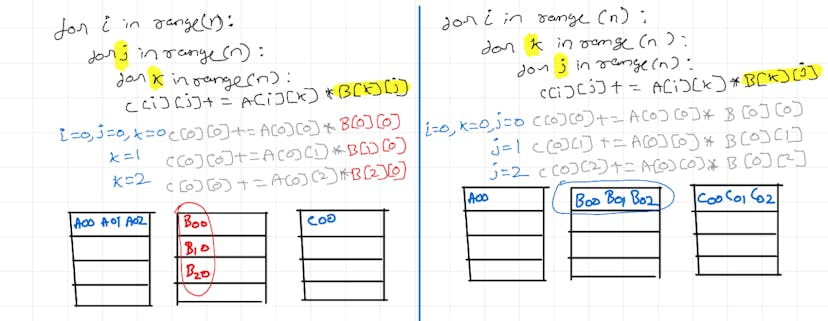 for i in range(n):
for j in range(n):
for k in range(n):
C[i][j] += A[i][k] * B[k][j]
i=0, j=0, k=0 C[0][0] += A[0][0] * B[0][0]
k=1 C[0][0] += A[0][1] * B[1][0]
k=2 C[0][0] += A[0][2] * B[2][0]
A00 A01 A02
B00
B10
B20
C00
for i in range(n):
for k in range(n):
for j in range(n):
C[i][j] += A[i][k] * B[k][j]
i=0, k=0, j=0 C[0][0] += A[0][0] * B[0][0]
j=1 C[0][1] += A[0][0] * B[0][1]
j=2 C[0][2] += A[0][0] * B[0][2]
A00
B00 B01 B02
C00 C01 C02